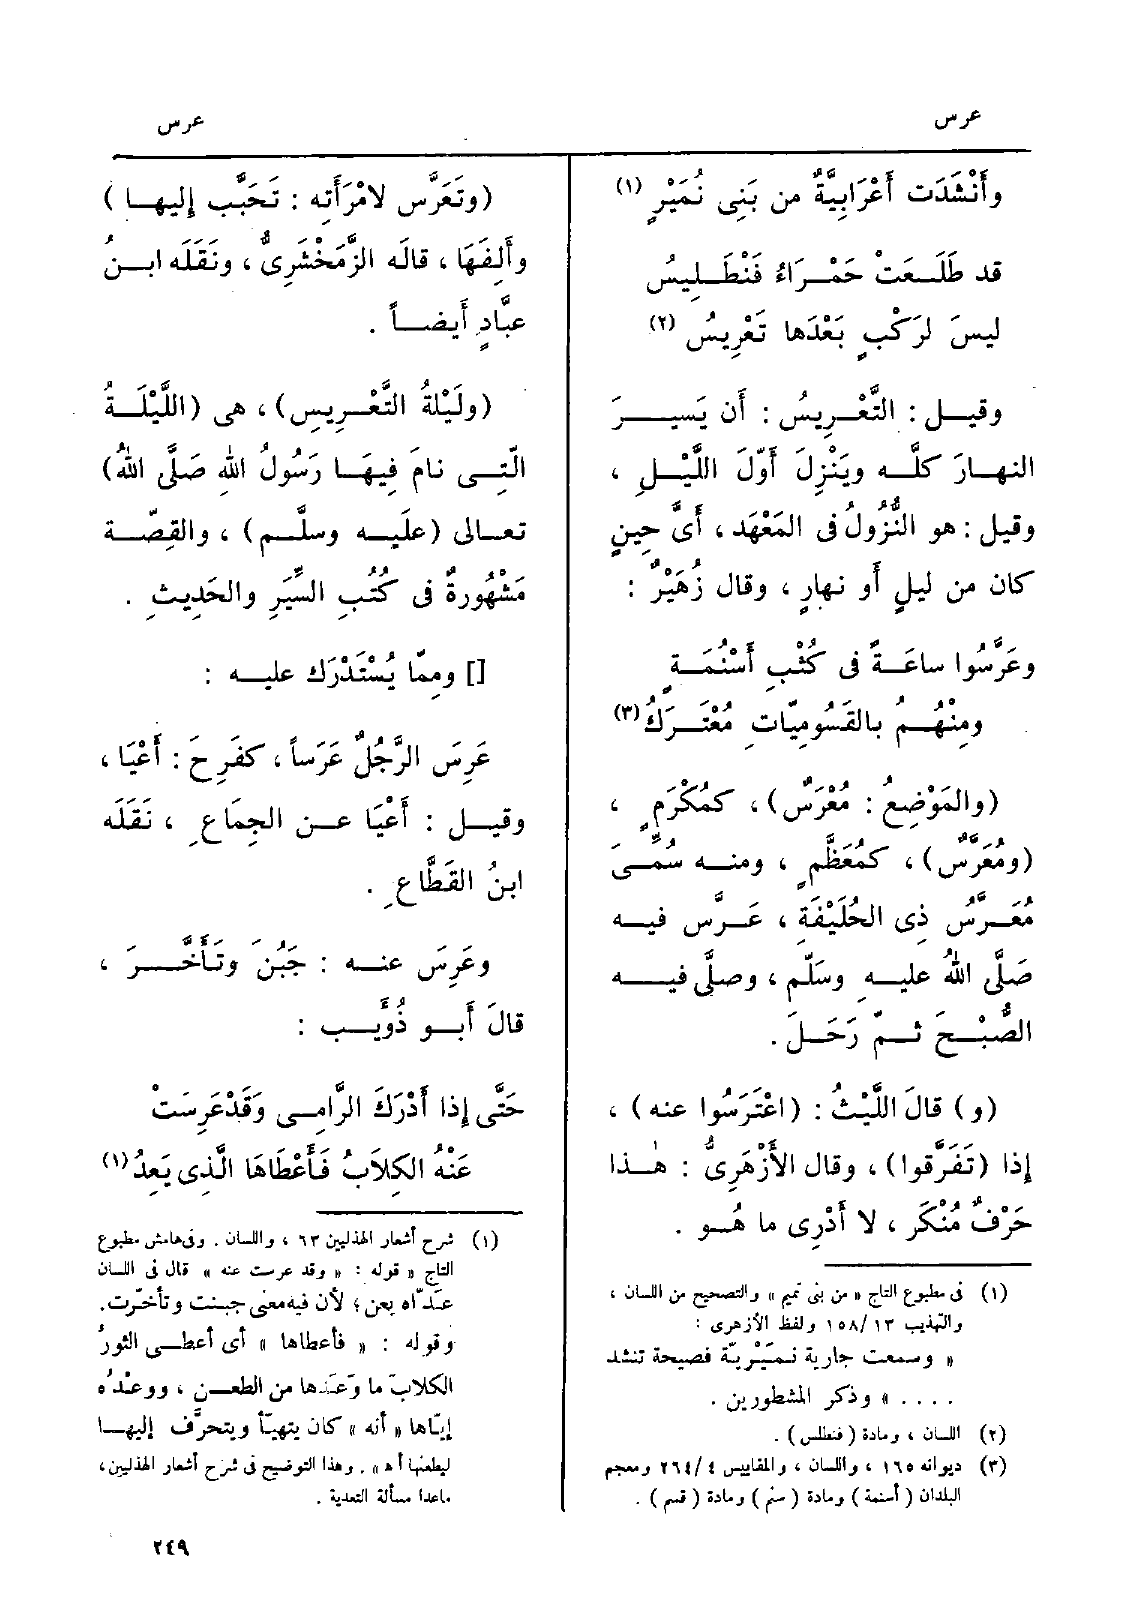 عرس
عرس
وأَنْشَدَت أَعْرَابِيَّةٌ من بَنِى نُمَيْرٍ (١)
قد طَلَعَتْ حَمْرَاءُ فَنْطَلِيسُ
ليسَ لرَكْبٍ بَعْدَها تَعْرِيسُ (٢)
وقيل : التَّعْرِيسُ : أَن يَسيرَ
النهارَ كلَّه ويَنْزِلَ أَوّلَ اللَّيْلِ ،
وقيل : هو النُّزُولُ فى المَعْهَد ، أَىَّ حِينٍ
كان من ليلٍ أَو نهارٍ ، وقال زُهَيْرٌ :
وعَرَّسُوا ساعَةً فى كُثْبِ أَسْنُمَةٍ
ومِنْهُمُ بالقَسُومِيّاتِ مُعْتَرَكُ (٣)
(والمَوْضِعُ : مُعْرَسٌ) ، كمُكْرَمٍ ،
(ومُعَرَّسٌ) ، كمُعَظَّمٍ ، ومنه سُمِّىَ
مُعَرَّسُ ذِى الحُلَيْفَةِ ، عَرَّس فيه
صَلَّى اللهُ عليهِ وسَلَّم ، وصلَّى فيه
الصُّبْحَ ثمّ رَحَلَ .
(و) قالَ اللَّيْثُ : (اعْتَرَسُوا عنه) ،
إذا (تَفَرَّقوا) ، وقال الأَزْهَرِىُّ : هٰذا
حَرْفٌ مُنْكَر ، لا أَدْرِى ما هُو .
(١) فى مطبوع التاج « من بنى تميم » والتصحيح من اللسان ،
والتهذيب ١٣/ ١٥٨ ولفظ الأزهرى :
« وسمعت جارية نميْريّة فصيحة تنشد
.... » وذكر المشطورين .
(٢) اللسان ، ومادة (فنطلس) .
(٣) ديوانه ١٦٥ ، واللسان ، والمقاييس ٤/ ٢٦٤ ومعجم
البلدان ( أسنمة ) ومادة ( سنم ) ومادة ( قسم ) .
(وتَعَرَّس لامْرَأَتِه : تَحَبَّب إليها )
وأَلِفَهَا ، قالَه الزَّمَخْشَرِىُّ ، ونَقَلَه ابنُ
عبّادٍ أَيضاً .
(ولَيْلةُ التَّعْرِيسِ) ، هى (اللَّيْلَةُ
الّتِى نامَ فِيهَا رَسُولُ اللهِ صَلَّى اللهُ)
تعالى (علَيه وسلَّم) ، والقِصّة
مَشْهُورةٌ فى كُتُبِ السِّيَرِ والحَدِيثِ .
[] ومِمّا يُسْتَدْرَك عليه :
عَرِسَ الرَّجُلُ عَرَساً ، كفَرِحَ : أَعْيَا ،
وقيل : أَعْيَا عن الجِمَاعِ ، نَقَلَه
ابنُ القَطَّاعِ .
وعَرِسَ عنه : جَبُنَ وتَأَخَّرَ ،
قالَ أَبو ذُؤَيب :
حَتَّى إذا أَدْرَكَ الرَّامِى وَقَدْ عَرِسَتْ
عَنْهُ الكِلَابُ فَأَعْطَاهَا الَّذِى يَعِدُ (١)
(١) شرح أشعار الهذليين ٦٣ ، واللسان . وفى هامش مطبوع
التاج « قوله : « وقد عرست عنه » قال فى اللسان
عدّاه بعن ؛ لأن فيه معنى جبنت وتأخّرت .
وقوله : « فأعطاها » أى أعطى الثورُ
الكلابَ ما وَعَدَها من الطعن ، ووعْدُه
إيّاها « أنه » كان يتهيّأ ويتحرَّف إليها
ليطعنها أه » . وهذا التوضيح فى شرح أشعار الهذليين ،
ماعدا مسألة التعدية .
٢٤٩